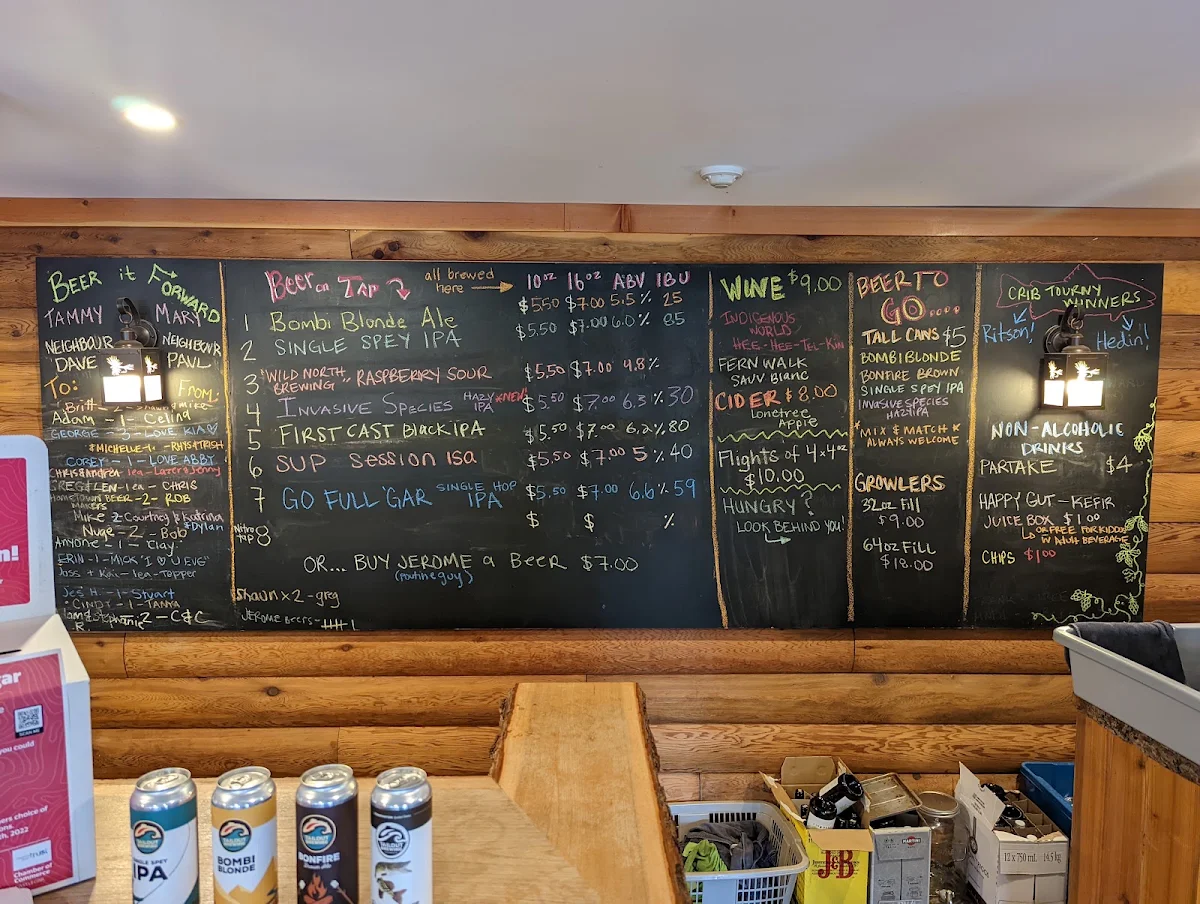 BEER it FORWARD
TAMMY MARY
NEIGHBOUR DAVE NEIGHBOUR PAUL
TO: FROM:
Britt - 2 - Shauna mike
Adam - 1 - Celina
GEORGE - 5 - LOVE KIA
*MICHELLE-1 - RHYS+TRISH
COREY - 1 - LOVE ABBY
CHRIS&Andrea 1ea - Lazer&Jenny
GREG&LEN - 1ea - CHRIS
HOMETOWN BEER - 2 - ROB
MAKERS
Mike 2 Courtney & Katrina
Nuge - 2 - Bob *Dylan
Anyone - 1 - Clay
ERIN - 1 - MICK "I ♡ U EVE"
Jass + Kai - 1ea - Topper
Jes H. - 1 - Stuart
CINDY - 1 - TANYA
2 - C&C
Beer on TAP
all brewed here →
10oz 16oz ABV IBU
1 Bombi Blonde Ale $5.50 $7.00 5.5% 25
2 SINGLE SPEY IPA $5.50 $7.00 6.0% 85
3 "WILD NORTH BREWING" RASPBERRY SOUR $5.50 $7.00 4.8%
4 INVASIVE SPECIES HAZY IPA *NEW $5.50 $7.00 6.3% 30
5 FIRST CAST BLACK IPA $5.50 $7.00 6.2% 80
6 SUP Session ISA $5.50 $7.00 5% 40
7 GO FULL 'GAR SINGLE HOP IPA $5.50 $7.00 6.6% 59
Nitro tap 8 $ $ %
OR... BUY JEROME a BEER $7.00
(poutine guy)
Shaun x 2 - greg
JEROME BEERS - 卌 1
WINE $9.00
INDIGENOUS WORLD
HEE-HEE-TEL-KIN
FERN WALK
SAUV Blanc
CIDER $8.00
Lonetree
Apple
Flights of 4x4oz
$10.00
HUNGRY?
LOOK BEHIND YOU!
BEER TO
GO....
TALL CANS $5
BOMBI BLONDE
BONFIRE BROWN
SINGLE SPEY IPA
INVASIVE SPECIES
HAZY IPA
*MIX & MATCH*
ALWAYS WELCOME
GROWLERS
32oz Fill
$9.00
64oz FILL
$18.00
CRIB TOURNY
WINNERS
Ritson! Hedin!
NON-ALCOHOLIC
DRINKS
PARTAKE $4
HAPPY GUT - KEFIR
JUICE BOX $1.00
↳ OR FREE FOR KIDDOS
W/ ADULT BEVERAGE
CHIPS $1.00
SCAN ME
you could
2022
Chamber of
Commerce
SINGLE SPEY
IPA
TAILOUT
BREWING
BOMBI
BLONDE
TAILOUT
BREWING
BONFIRE
TAILOUT
BREWING
J&B
MARTINI
12 x 750 mL 14.5 kg